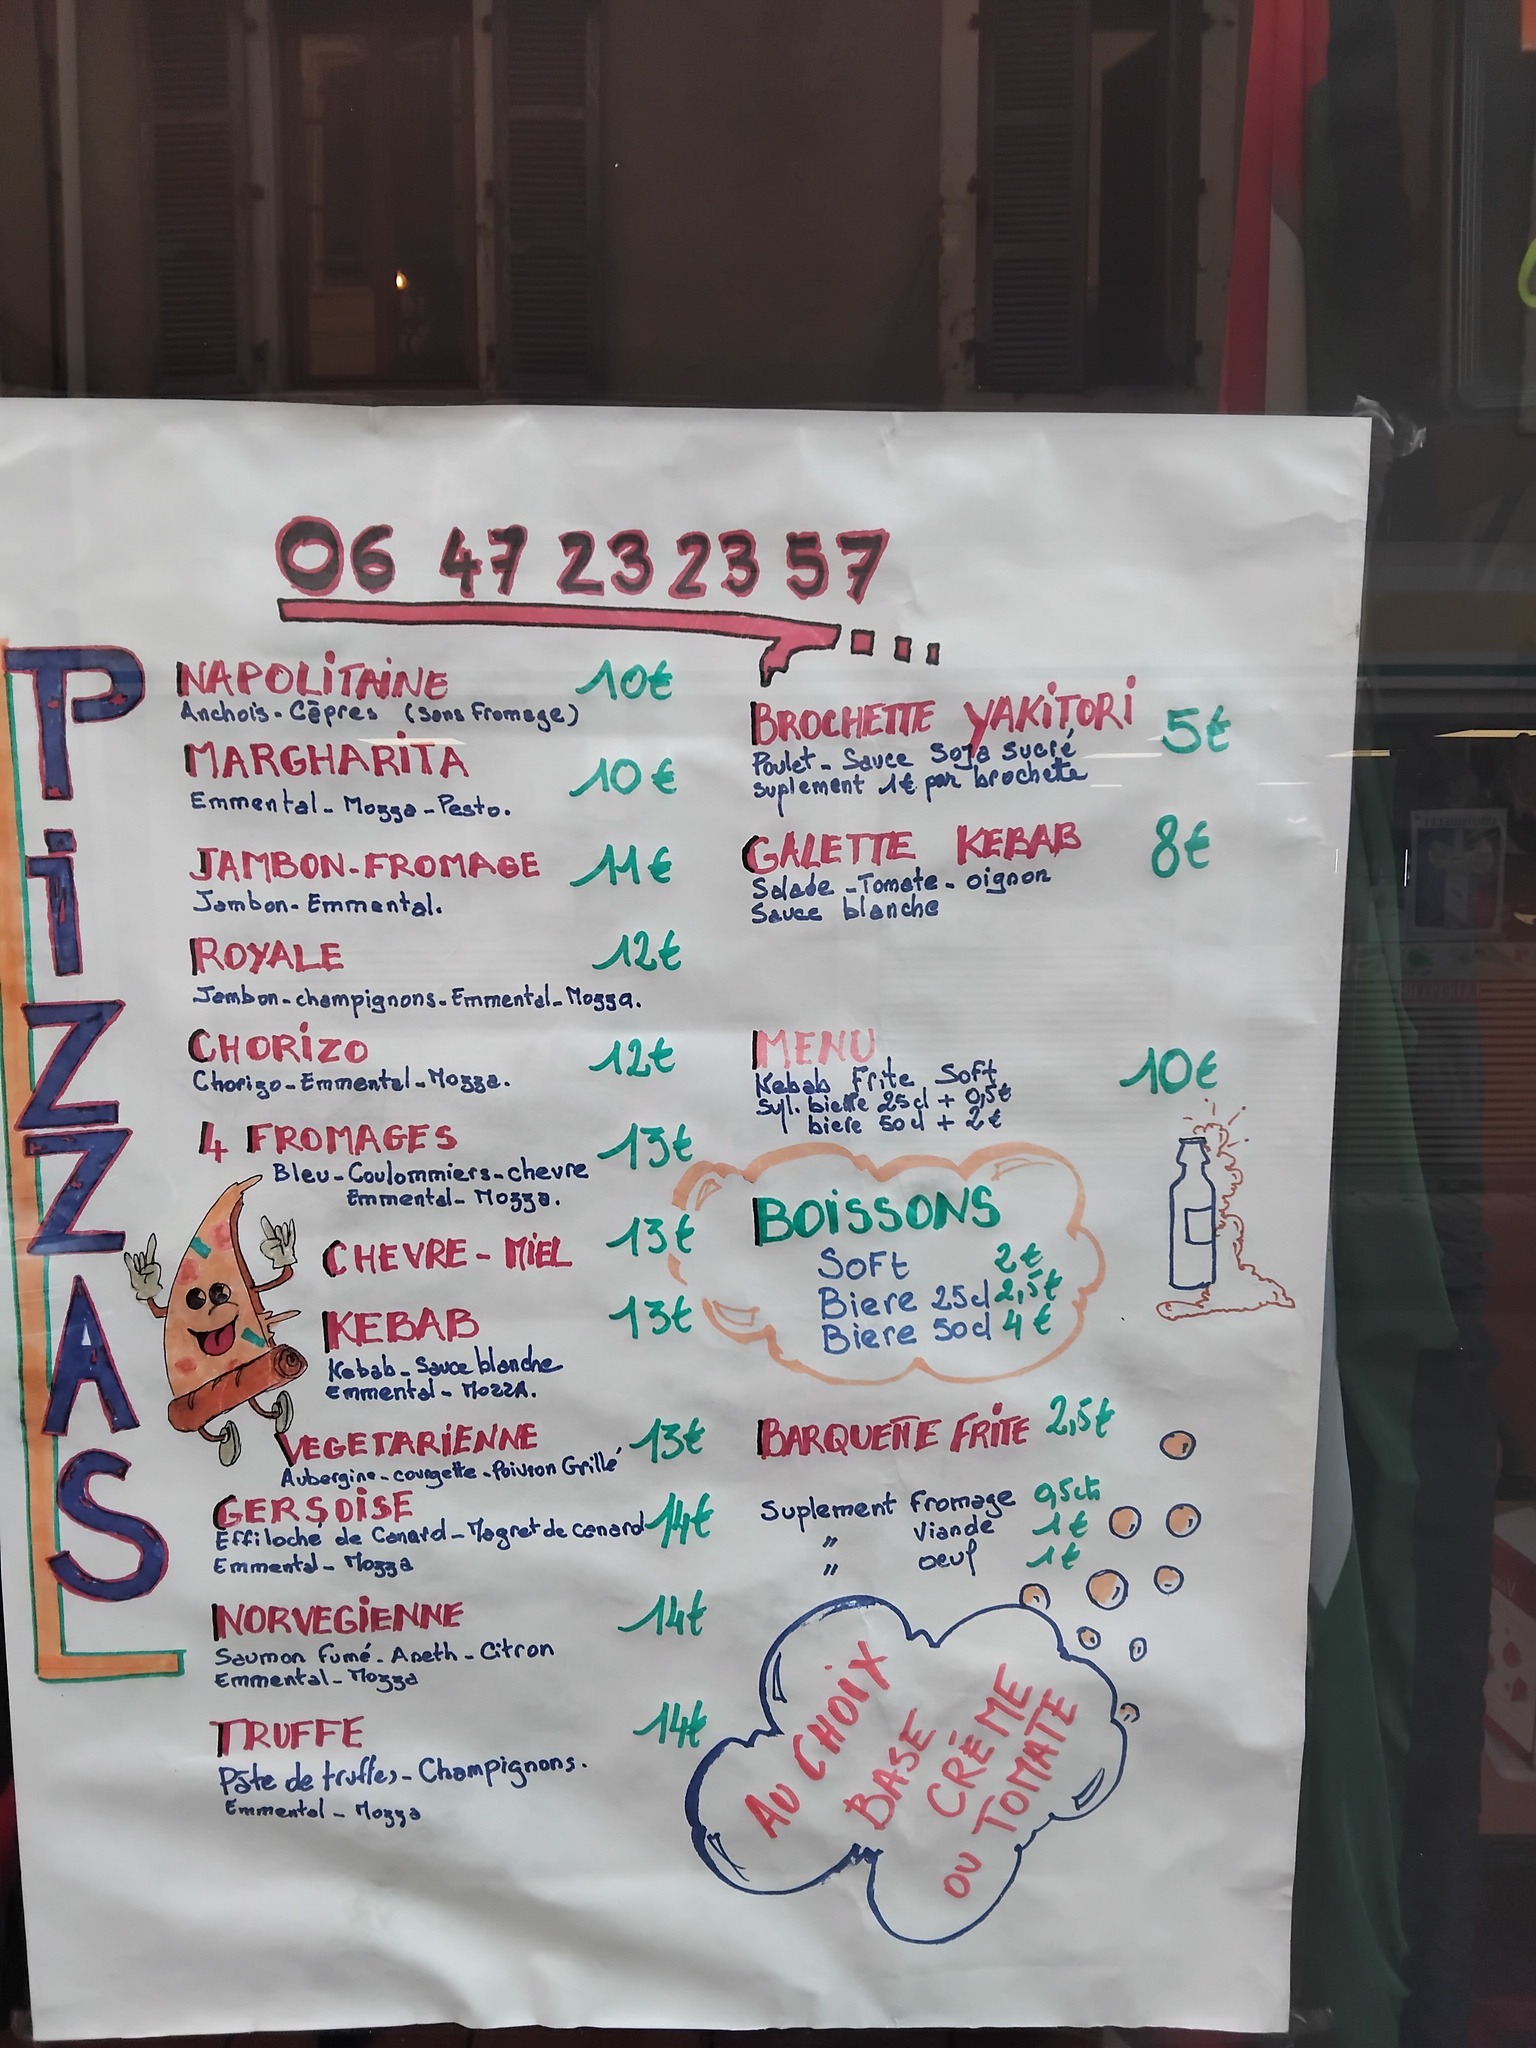 06 47 23 23 57
PiZZAS
NAPOLiTAiNE 10€
Anchois - Câpres (Sans Fromage)
MARGHARiTA 10€
Emmental - Mozza - Pesto.
JAMBON-FROMAGE 11€
Jambon - Emmental.
ROYALE 12€
Jambon - champignons - Emmental - Mozza.
CHORiZO 12€
Chorizo - Emmental - Mozza.
4 FROMAGES 13€
Bleu - Coulommiers - chevre
Emmental - Mozza.
CHEVRE - MiEL 13€
KEBAB 13€
Kebab - Sauce blanche
Emmental - MOZZA.
VEGETARiENNE 13€
Aubergine - courgette - Poivron Grillé
GERSOISE 14€
Effiloché de Canard - Magret de canard
Emmental - Mozza
NORVEGiENNE 14€
Saumon Fumé - Aneth - Citron
Emmental - Mozza
TRUFFE 14€
Pâte de truffes - Champignons.
Emmental - Mozza
BROCHETTE YAKiTORi 5€
Poulet - Sauce Soja sucré
suplement 1€ par brochette
GALETTE KEBAB 8€
Salade - Tomate - oignon
Sauce blanche
MENU 10€
Kebab Frite Soft
Syl. bierre 25cl + 0,5€
biere 50cl + 2€
BOiSSONS
SOFT 2€
Biere 25cl 2,5€
Biere 50cl 4€
BARQUETTE FRiTE 2,5€
Suplement Fromage 0,5cts
" Viande 1€
" oeuf 1€
AU CHOiX
BASE
CRÈME
OU TOMATE